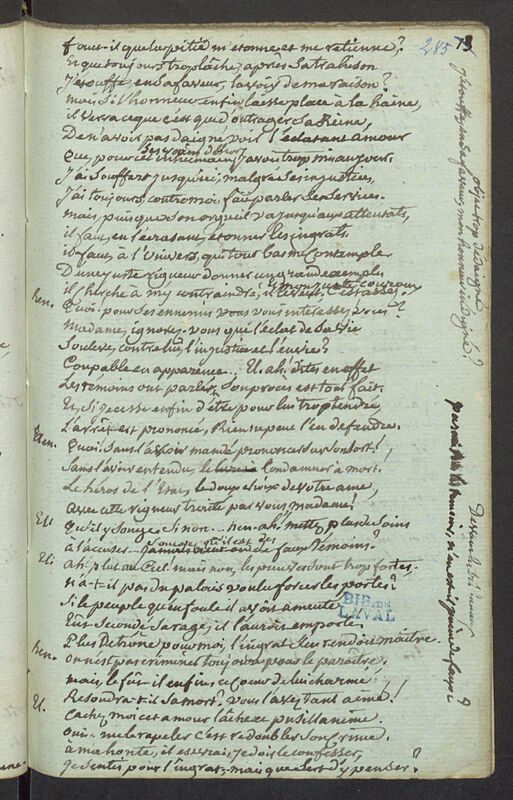 285 73
Faut-il que la pitié m'étonne et me retienne?
Et que toujours trop lâche, après sa trahison
J'étouffe, en sa faveur, la voix de ma raison?
mais si l'honneur enfin laisse place à la haine,
il verra ce que c'est que d'outrager sa Reine,
De n'avoir pas daigné voir l'éclatant amour
Que, pour cet inhumain, j'avois trop mis au jour.
ses vains dehors
J'ai souffert jusqu'ici, malgré ses injustices,
J'ai toujours, contre moi, fait parler ses services.
mais puisque son orgueil va jusqu'aux attentats,
il faut, en l'écrasant, étonner les ingrats.
il faut, à l'Univers, qui tout bas me contemple
D'une juste rigueur donner un grand exemple,
il cherche à m'y contraindre, il le veut, c'est assez.
mon juste couroux
hen. Quoi! pour ses ennemis vous vous intéressez, vous?
Madame, ignorez-vous que l'éclat de sa vie
Souleve, contre lui, l'injustice et l'envie?
Coupable en apparence.. El. ah! dites en effet
Les témoins ont parlé, son procès est tout fait.
Et, si je cesse enfin d'être pour lui trop tendre,
L'arrêt est prononcé, Rien ne peut l'en defendre.
hen. Quoi! sans l'avoir mandé prononcer sur son sort!
Sans l'avoir entendu, le condamner à mort.
Le héros de l'Etat, le doux choix de votre ame,
Avec cette rigueur traité par vous, madame!
El. Qu'il y songe, sinon.. hen. ah! mettez plus de soins
à l'accuser.
Songez, qu'il est des faux témoins?
El. Ah! plut au Ciel! mais non, les preuves sont trop fortes.
N'a-t-il pas du palais voulu forcer les portes?
Si le peuple qu'en foule il avoit ameuté
Eut secondé sa rage, il l'auroit emporté.
Plus de trône pour moi, l'ingrat s'en rendoit maître.
hen. on n'est pas criminel toujours pour le paraître.
mais, le fût-il enfin, ce coeur de lui charmé
Resoudra-t-il sa mort? vous l'avez tant aimé!
El. Cachez moi cet amour lâche et pusillanime.
oui.. me le rapeler c'est redoubler son crime.
à ma honte, il est vrai, je dois le confesser,
je sentis pour l'ingrat.. mais que sert d'y penser?
BIB. DE
LAVAL
objet trop dédaigné
j'étouffe, en sa faveur, mon honneur indigné?